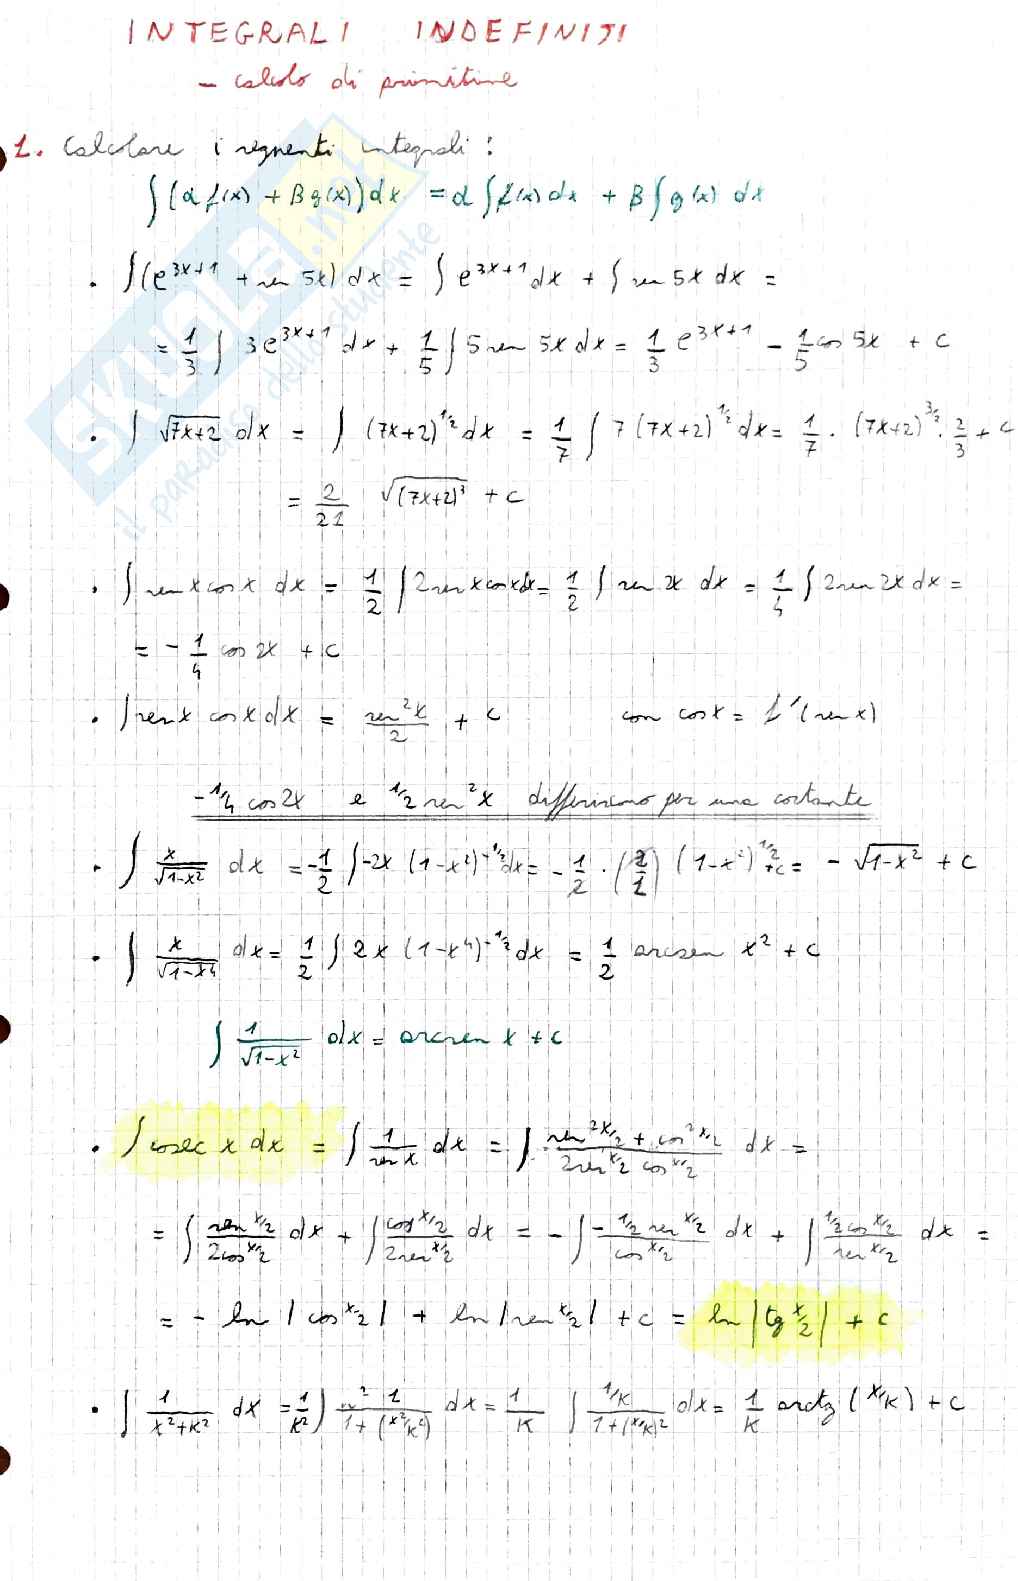 INTEGRALI INDEFINITI
- calcolo di primitive
1. Calcolare i seguenti integrali:
∫(α f(x) + β g(x)) dx = α ∫ f(x) dx + β ∫ g(x) dx
• ∫(e^{3x+1} + sen 5x) dx = ∫ e^{3x+1} dx + ∫ sen 5x dx =
= 1/3 ∫ 3e^{3x+1} dx + 1/5 ∫ 5 sen 5x dx = 1/3 e^{3x+1} - 1/5 cos 5x + c
• ∫ √(7x+2) dx = ∫ (7x+2)^{1/2} dx = 1/7 ∫ 7 (7x+2)^{1/2} dx = 1/7 · (7x+2)^{3/2} · 2/3 + c
= 2/21 √((7x+2)^3) + c
• ∫ sen x cos x dx = 1/2 ∫ 2 sen x cos x dx = 1/2 ∫ sen 2x dx = 1/4 ∫ 2 sen 2x dx =
= - 1/4 cos 2x + c
• ∫ sen x cos x dx = sen^2 x/2 + c con cos x = f'(sen x)
-1/4 cos 2x e 1/2 sen^2 x differiscono per una costante
• ∫ x/√(1-x^2) dx = -1/2 ∫ -2x (1-x^2)^{-1/2} dx = -1/2 · (2/1) (1-x^2)^{1/2} + c = - √(1-x^2) + c
• ∫ x/√(1-x^4) dx = 1/2 ∫ 2x (1-x^4)^{-1/2} dx = 1/2 arcsen x^2 + c
∫ 1/√(1-x^2) dx = arcsen x + c
• ∫ cosec x dx = ∫ 1/(sen x) dx = ∫ (sen^2 x/2 + cos^2 x/2)/(2 sen x/2 cos x/2) dx =
= ∫ (sen x/2)/(2 cos x/2) dx + ∫ (cos x/2)/(2 sen x/2) dx = - ∫ (-1/2 sen x/2)/(cos x/2) dx + ∫ (1/2 cos x/2)/(sen x/2) dx =
= - ln |cos x/2| + ln |sen x/2| + c = ln |tg x/2| + c
• ∫ 1/(x^2+k^2) dx = 1/k^2 ∫ 1/(1+(x^2/k^2)) dx = 1/k ∫ (1/k)/(1+(x/k)^2) dx = 1/k arctg (x/k) + c
SKUOLA.net
il paradiso dello studente